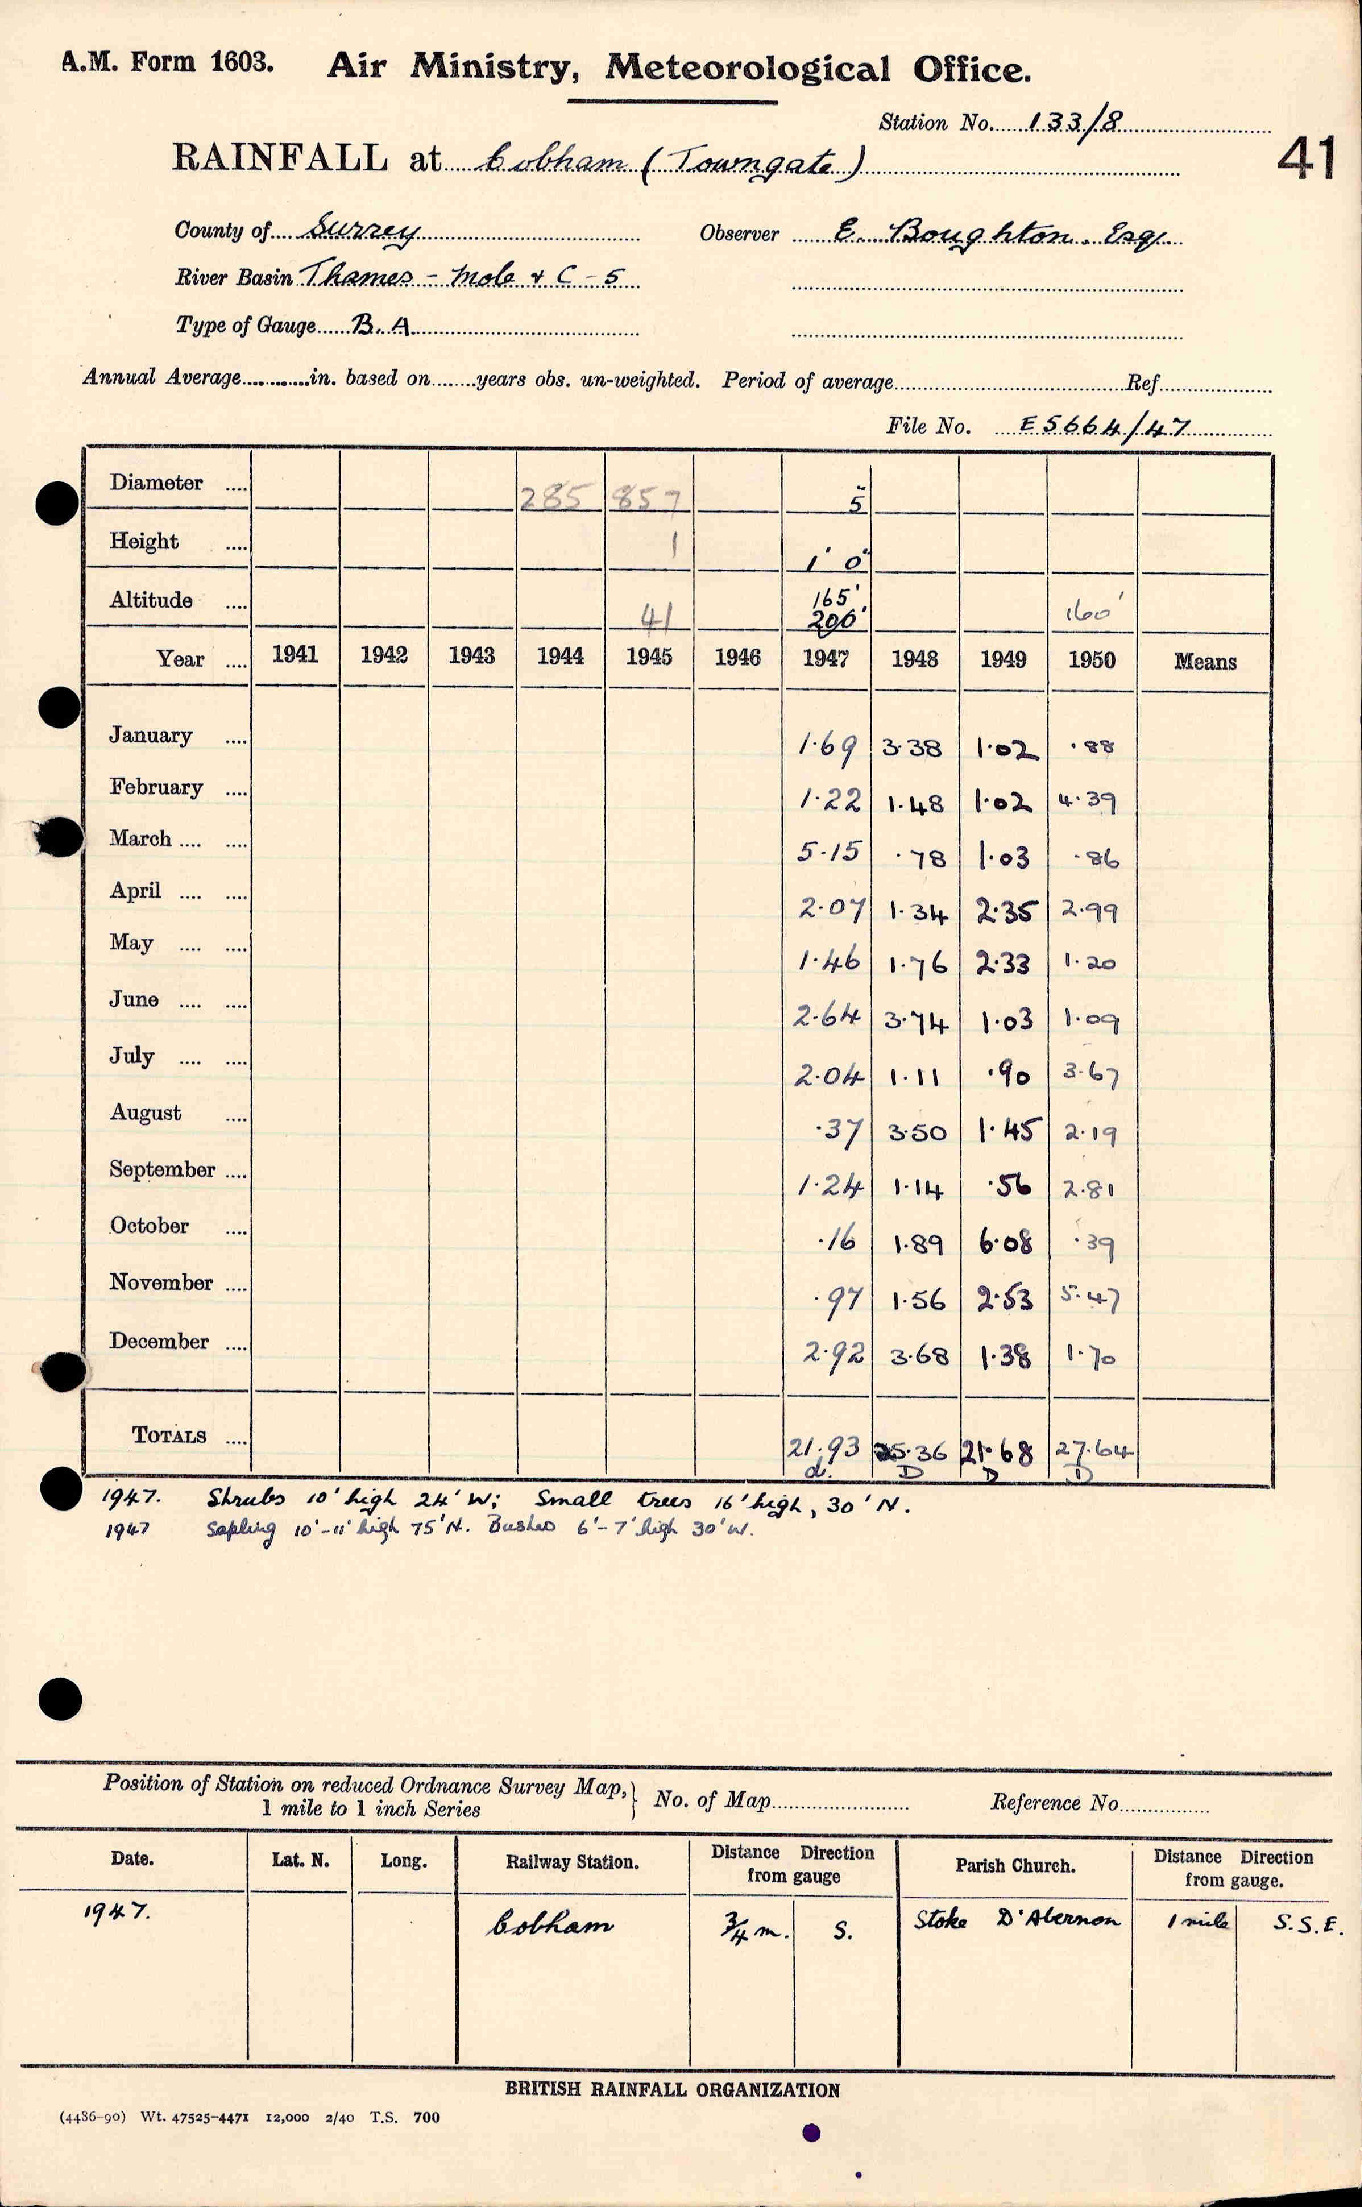 A.M. Form 1603. Air Ministry, Meteorological Office.
Station No. 133/8
41
RAINFALL at Cobham (Towngate)
County of Surrey Observer E. Boughton. Esq.
River Basin Thames - Mole + C - 5
Type of Gauge B.A
Annual Average............in. based on........years obs. un-weighted. Period of average........ Ref........
File No. E5664/47
Diameter .... 285 857 5"
Height .... 1 1' 0"
Altitude .... 41 165' 200' 160'
Year .... 1941 1942 1943 1944 1945 1946 1947 1948 1949 1950 Means
January .... 1.69 3.38 1.02 .88
February .... 1.22 1.48 1.02 4.39
March .... .... 5.15 .78 1.03 .86
April .... .... 2.07 1.34 2.35 2.99
May .... .... 1.46 1.76 2.33 1.20
June .... .... 2.64 3.74 1.03 1.09
July .... .... 2.04 1.11 .90 3.67
August .... .37 3.50 1.45 2.19
September .... 1.24 1.14 .56 2.81
October .... .16 1.89 6.08 .39
November .... .97 1.56 2.53 5.47
December .... 2.92 3.68 1.38 1.70
TOTALS .... 21.93 25.36 21.68 27.64
d. D D D
1947. Shrubs 10' high 24' W; Small trees 16' high, 30' N.
1947 Sapling 10'-11' high 75' N. Bushes 6'-7' high 30' W.
Position of Station on reduced Ordnance Survey Map, } No. of Map........ Reference No........
1 mile to 1 inch Series
Date. Lat. N. Long. Railway Station. Distance Direction from gauge Parish Church. Distance Direction from gauge.
1947. Cobham 3/4 m. S. Stoke D'Abernon 1 mile S.S.E.
BRITISH RAINFALL ORGANIZATION
(4486-90) Wt. 47525-4471 12,000 2/40 T.S. 700